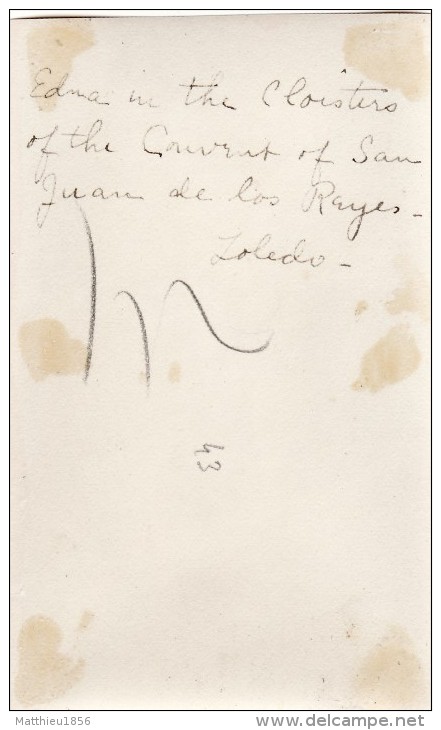 Edna in the Cloisters
of the Convent of San
Juan de los Reyes -
Toledo -
43
Matthieu1856
delcampe.net